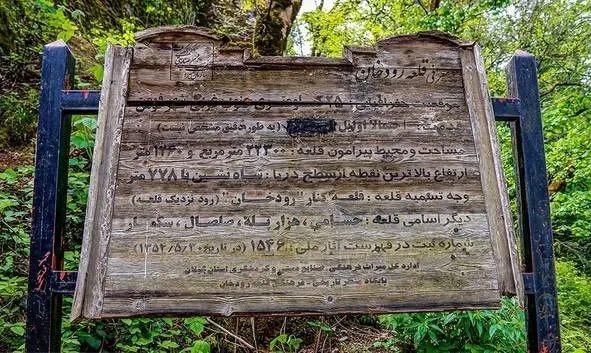 قلعه رودخان
موقعیت جغرافیایی :
قدمت : احتمالا اوایل (به طور دقیق مشخص نیست)
مساحت ومحیط پیرامون قلعه : متر مربع و متر
ارتفاع بالاترین نقطه ازسطح دریا : شاه نشین با ۷۷۸ متر
وجه تسمیه قلعه : قلعه کنار "رودخان" (رود نزدیک قلعه)
دیگر اسامی قلعه : حسامی، هزار پله، صلصال، سگسار
شماره ثبت در فهرست آثار ملی : ۱۵۴۶ (در تاریخ ۱۳۵۴/۵/۳۰)
اداره کل میراث فرهنگی، صنایع دستی و گردشگری استان گیلان
پایگاه میراث فرهنگی قلعه رودخان